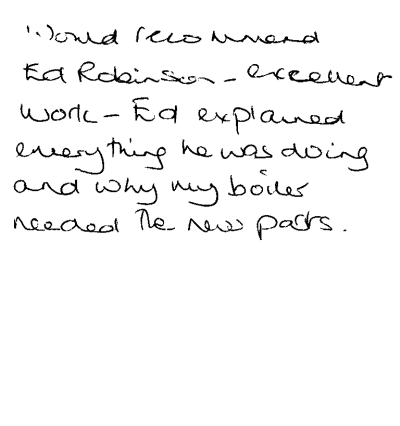 Would recommend
Ed Robinson - excellent
work - Ed explained
everything he was doing
and why my boiler
needed the new parts.